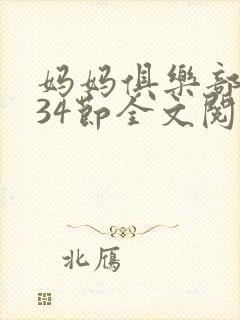 妈妈俱樂部
34節全文閱
北雁